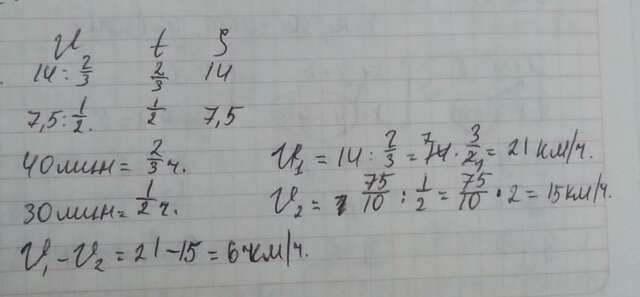 V t S
14 : 2/3 2/3 14
7,5 : 1/2. 1/2 7,5
40 мин = 2/3 ч.
30 мин = 1/2 ч.
V₁ = 14 : 2/3 = 14 7 · 3/2 1 = 21 км/ч.
V₂ = 75/10 : 1/2 = 75/10 · 2 = 15 км/ч.
V₁ - V₂ = 21 - 15 = 6 км/ч.